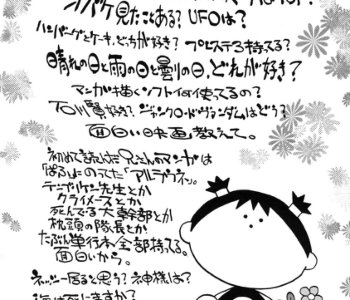 オバケ見たことある？UFOは？
ハンバーグとケーキ、どっちが好き？プレステ3持てる？
晴れの日と雨の日と曇りの日、どれが好き？
マンガ描くソフト何使ってるの？
石川賢好き？ジャンクロードヴァンダムはどう？
面白い映画教えて。
初めて読んだ兄さんマンガは
「ぱる」にのってた「アルラウネ」。
テンプルケン先生とか
クライメーヌとか
死んでる大幹部とか
枕頭の隊長とか
たぶん単行本全部持てる。
面白いから。
ネッシー居ると思う？神様は？